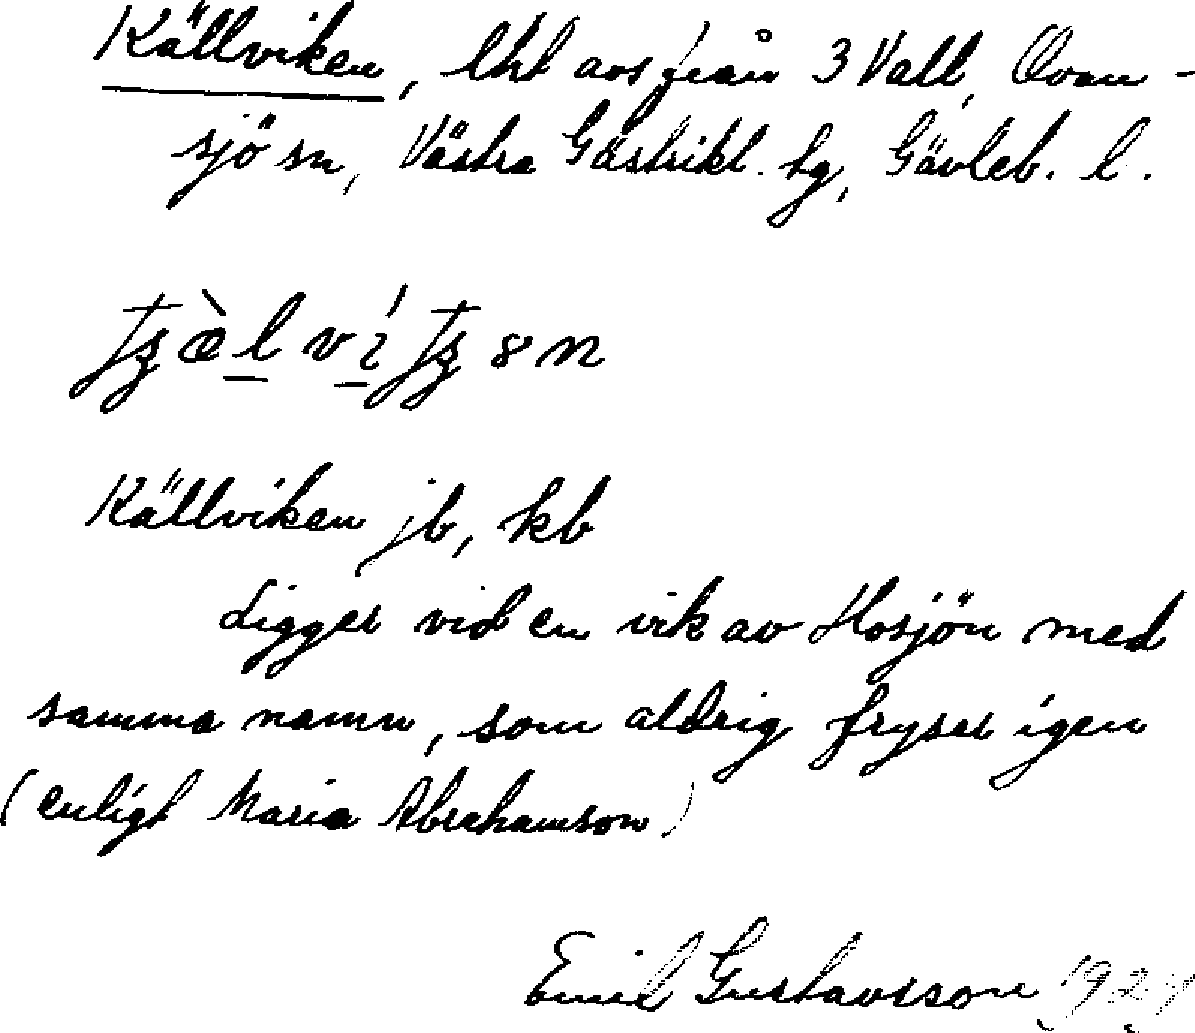 Källviken, lht avs från 3 Vall, Ovan-
sjö sn, Västra Gästrikl. tg, Gävleb. l.
Källviken jb, kb
Ligger vid en vik av Hosjön med
samma namn, som aldrig fryser igen
(enligt Maria Abrahamson)
Emil Gustavsson